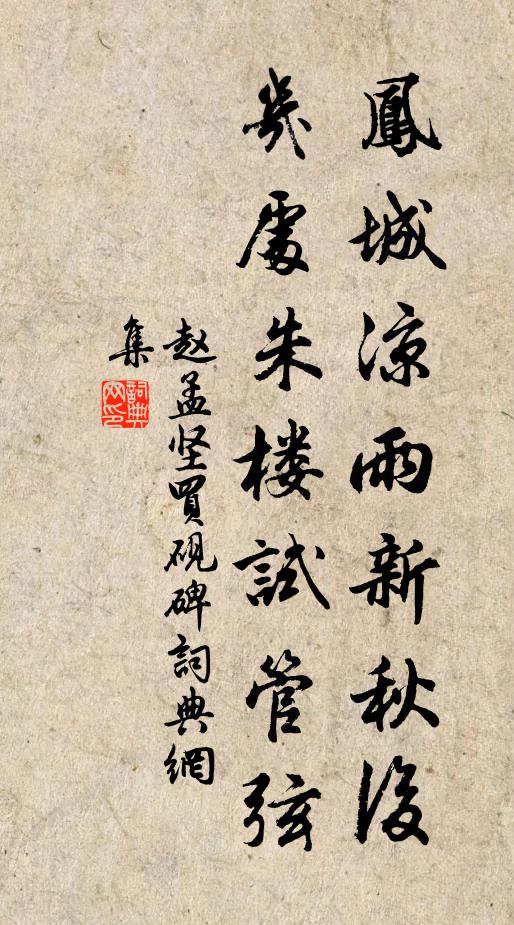 鳳城涼雨新秋後
幾處朱楼試管弦
赵孟坚買硯碑詞典網
集
詞典
网印